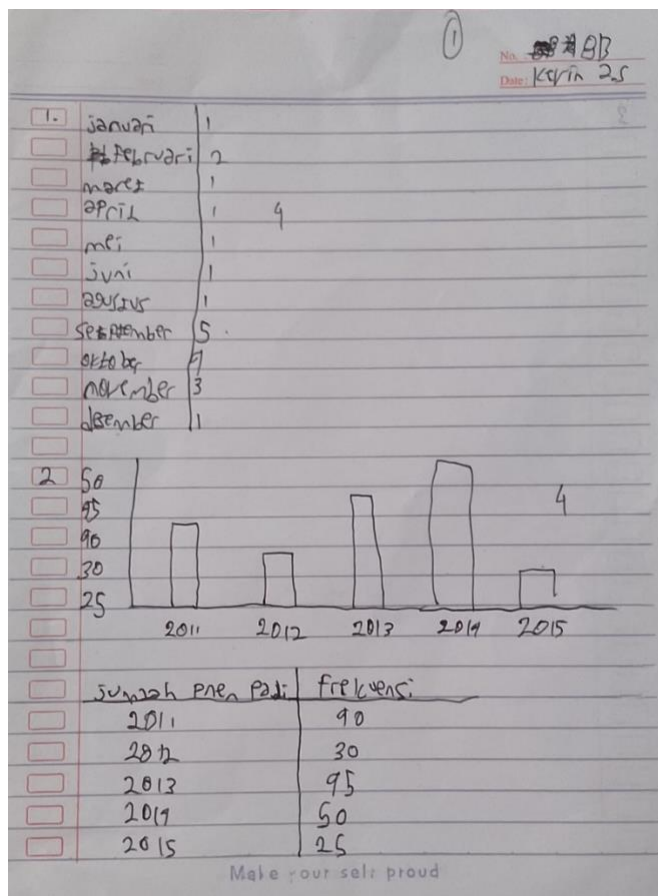 1
No. 8B
Date: Kevin 25
1. januari 1
Februari 2
maret 1
april 1 4
mei 1
juni 1
agustus 1
september 5
oktober 7
november 3
desember 1
2 50
45
40
30
25
4
2011 2012 2013 2014 2015
jumlah pnen padi frekuensi
2011 40
2012 30
2013 45
2014 50
2015 25
Make your self proud